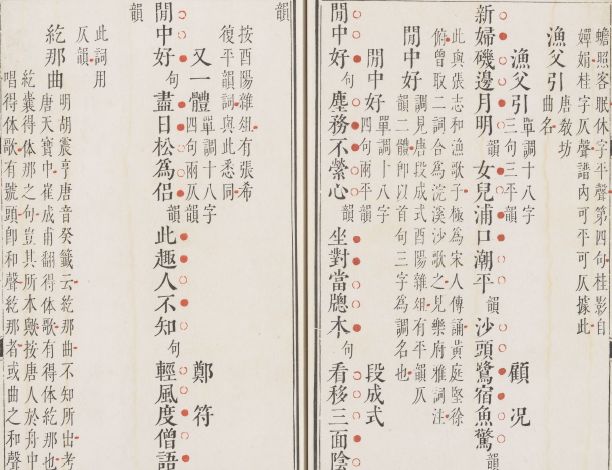 蟾照客眠休字平聲第四句桂影自
嬋娟桂字仄聲譜內可平可仄據此
漁父引 唐敎坊
曲名
漁父引 單調十八字
三句三平韻 顧况
新婦磯邊月明 韻 女兒浦口潮平 韻 沙頭鷺宿魚驚 韻
此與張志和漁歌子極為宋人傳誦黃庭堅徐
俯曾取二詞合為浣溪沙歌之見樂府雅詞注
閒中好 調見唐段成式酉陽雜俎有平韻仄
韻二體卽以首句三字為調名也
閒中好 單調十八字
四句兩平韻 段成式
閒中好 句 塵務不縈心 韻 坐對當牕木 句 看移三面陰
韻
按酉陽雜俎有張希
復平韻詞與此悉同
又一體 單調十八字
四句兩仄韻 鄭符
閒中好 句 盡日松為侶 韻 此趣人不知 句 輕風度僧語
韻
此詞用
仄韻
紇那曲 明胡震亨唐音癸籤云紇那曲不知所出考
唐天寶中崔成甫翻得体歌有得体紇那也
紇囊得体那之句豈其所本歟按唐人於舟中
唱得体歌有號頭卽和聲紇那者或曲之和聲